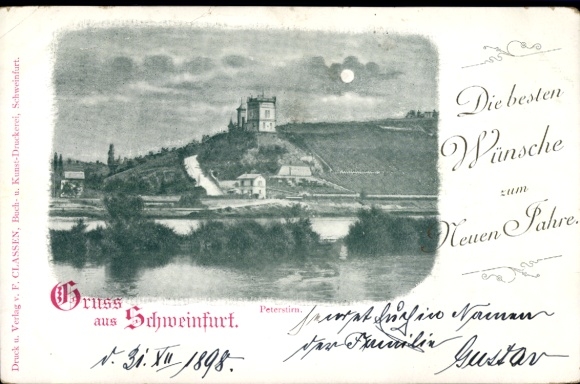 Druck u. Verlag v. F. CLASSEN, Buch- u. Kunst-Druckerei, Schweinfurt.
Die besten
Wünsche
zum
Neuen Jahre.
Gruss
aus Schweinfurt.
Peterstirn.
im Namen
der Familie
Gustav
d. 31. XII 1898.